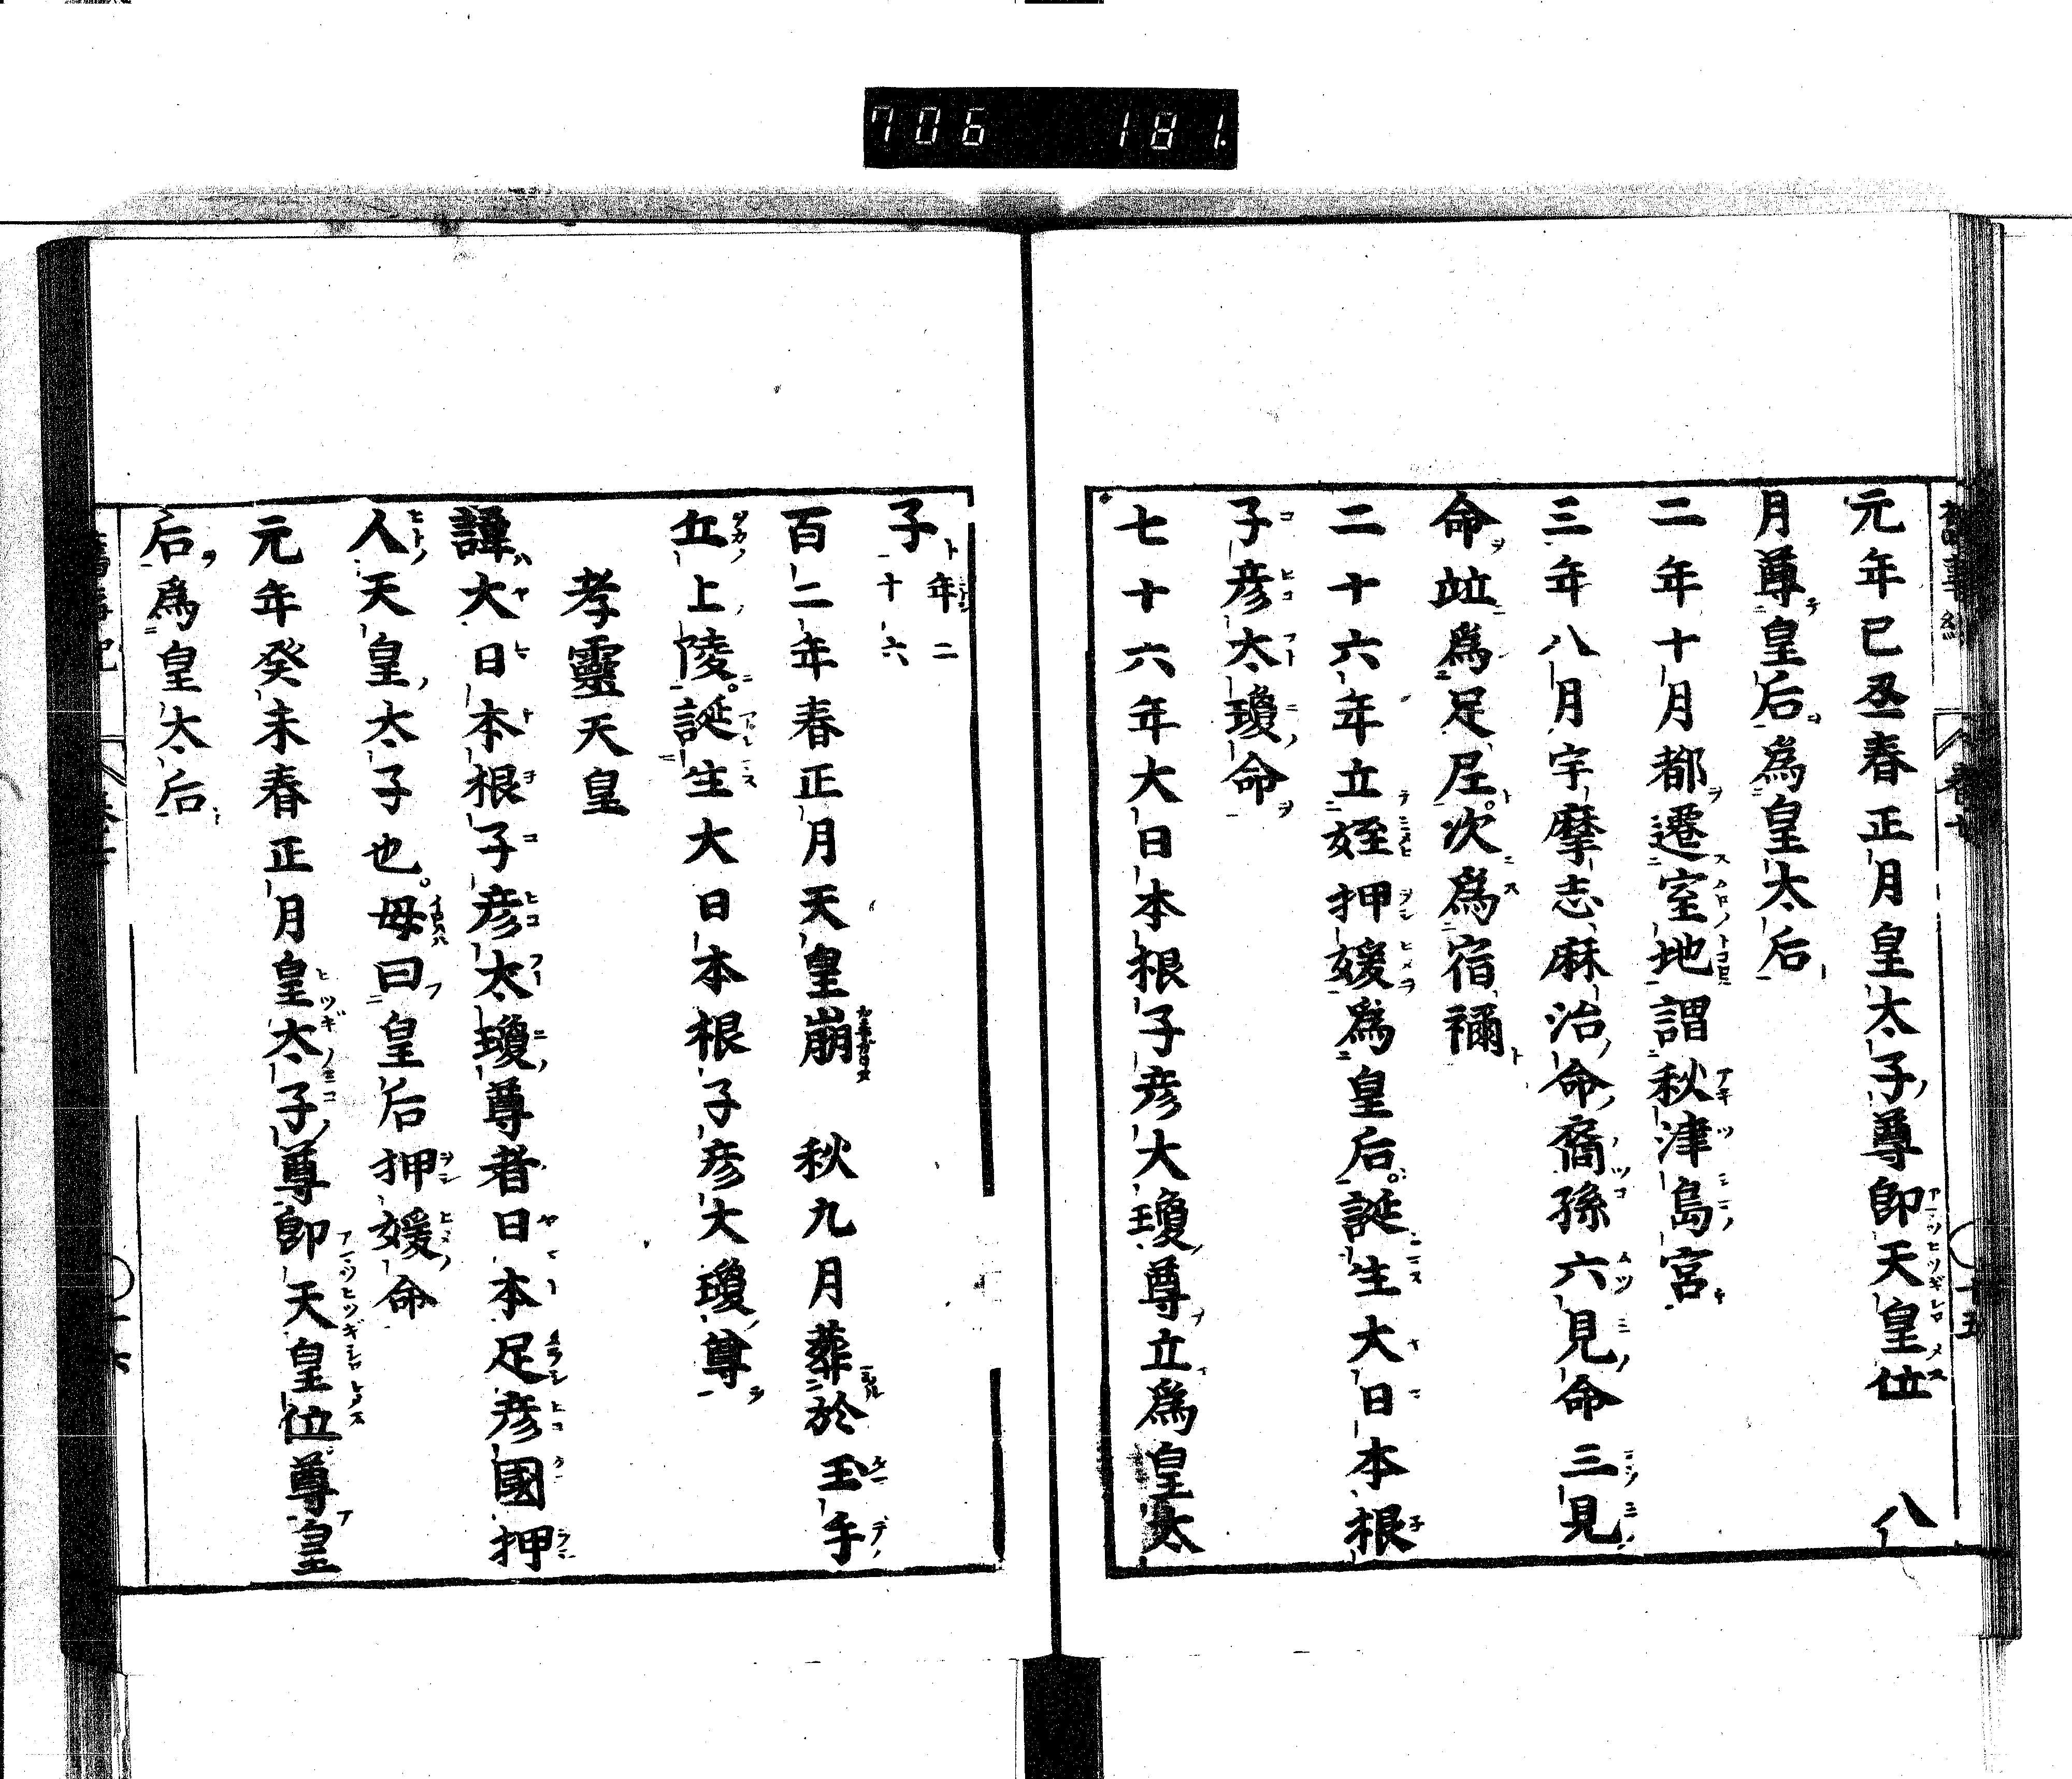 706 181.
元年己丑春正月皇太子尊卽天皇位 八
月尊皇后爲皇太后
二年十月都遷室地謂秋津島宮
三年八月宇摩志麻治命裔孫六見命三見
命竝爲足尼次爲宿禰
二十六年立姪押媛爲皇后誕生大日本根
子彦太瓊命
七十六年大日本根子彦大瓊尊立爲皇太
子年二十六
百二年春正月天皇崩 秋九月葬於玉手
丘上陵誕生大日本根子彦大瓊尊
孝靈天皇
諱大日本根子彦太瓊尊者日本足彦國押
人天皇太子也母曰皇后押媛命
元年癸未春正月皇太子尊卽天皇位尊皇
后爲皇太后